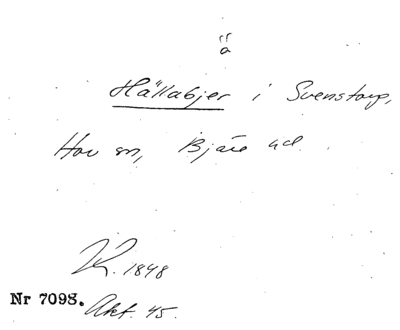 ä
Hällabjer i Svenstorp,
Hov sn, Bjäre hd.
R. 1848
Nr 7098. Akt. 45.